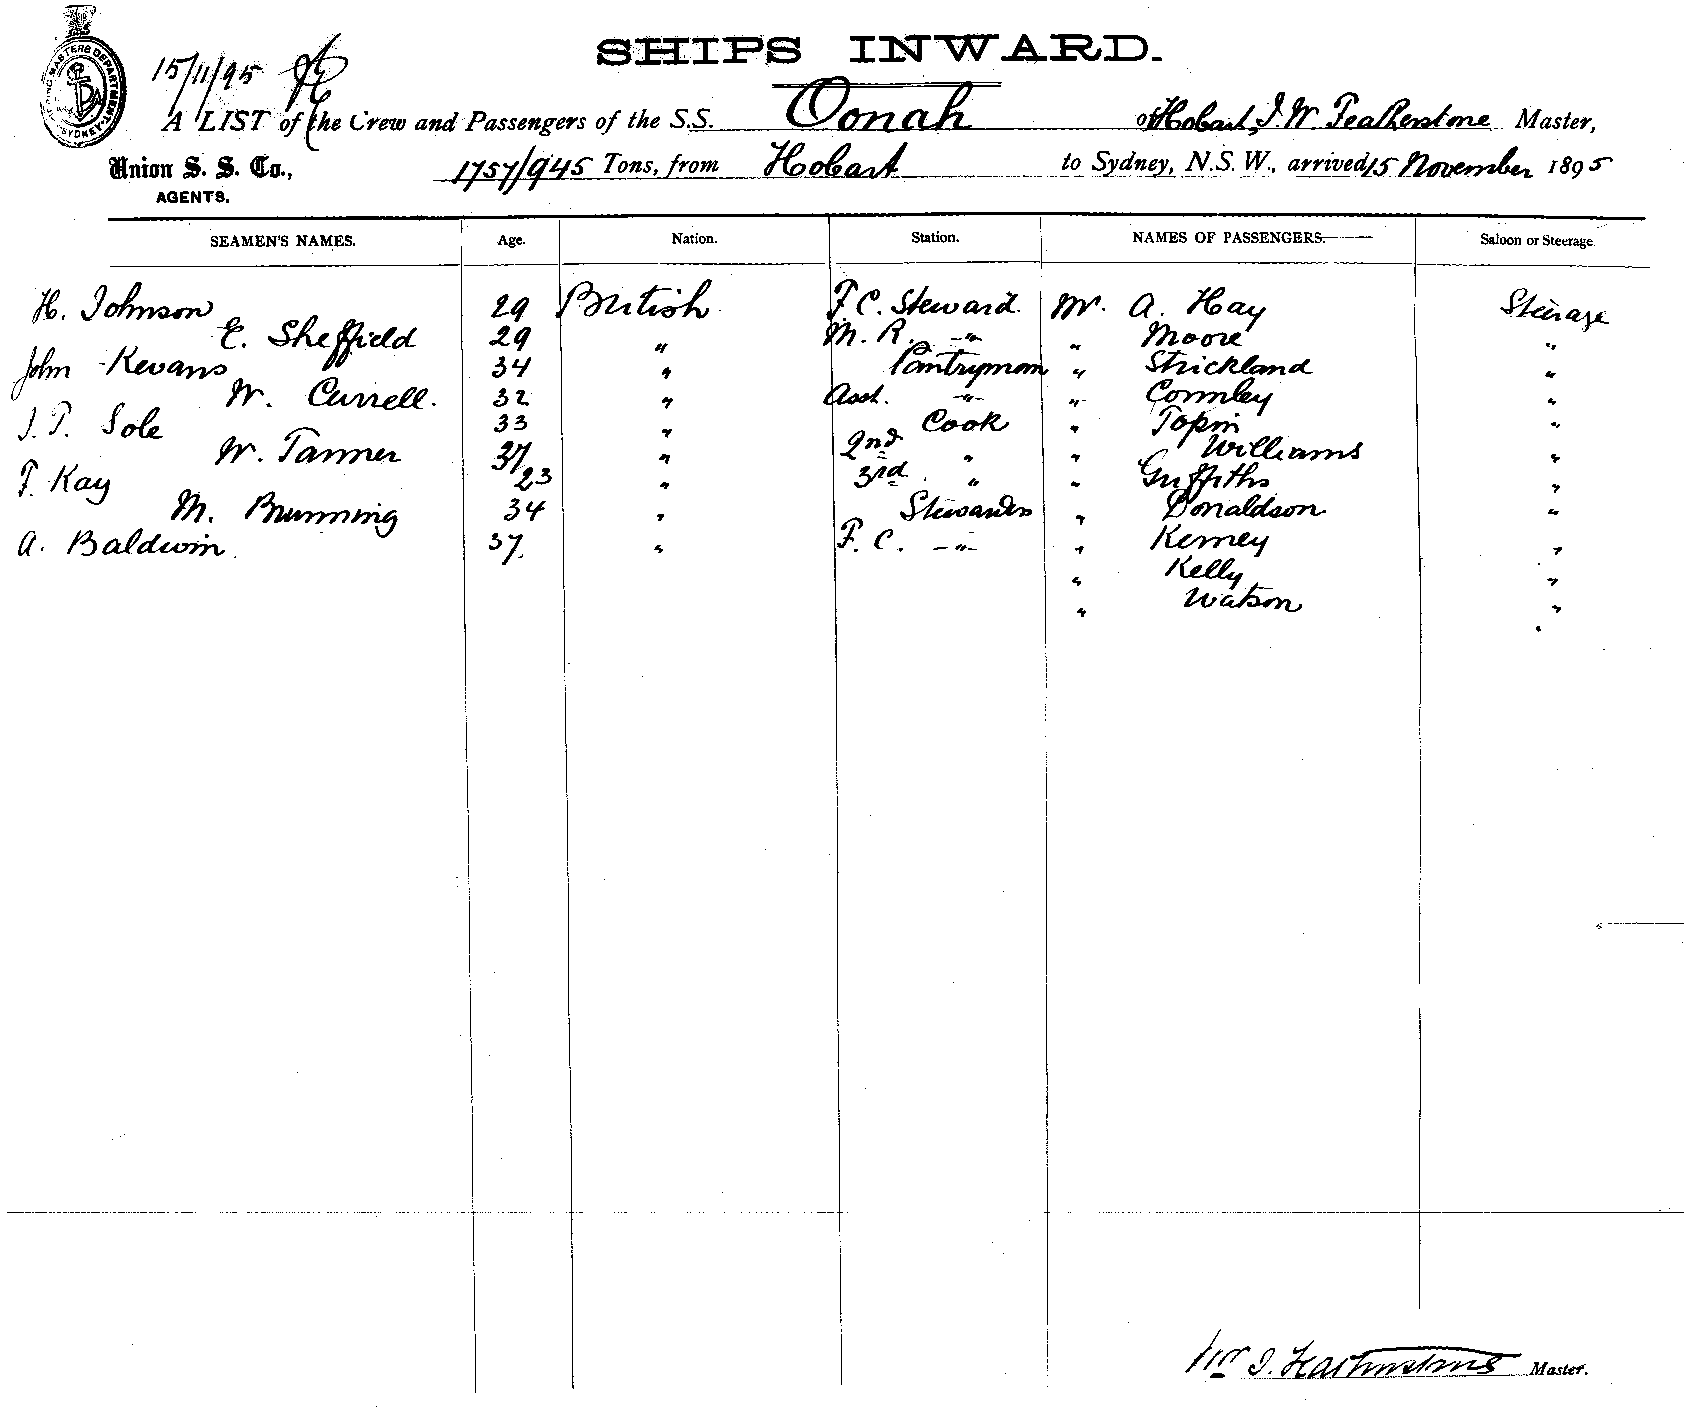 SHIPS INWARD.
15/11/95
A LIST of the Crew and Passengers of the S.S. Oonah of Hobart, J. W. Featherstone Master,
Union S. S. Co., AGENTS.
1757/945 Tons, from Hobart to Sydney, N.S.W., arrived 15 November 1895
SEAMEN'S NAMES. Age. Nation. Station. NAMES OF PASSENGERS. Saloon or Steerage.
H. Johnson 29 British F. C. Steward Mr. A. Hay Steerage
E. Sheffield 29 " M. R. -"- " Moore "
John Kevans 34 " Pantryman " Strickland "
W. Currell. 32 " Asst. -"- " Cormley "
J. T. Sole 33 " Cook " Topin "
W. Tanner 37 " 2nd " " Williams "
F. Kay 23 " 3rd " " Griffiths "
M. Brunning 34 " Stewardess " Donaldson "
A. Baldwin 37. " F. C. -"- " Kerney "
" Kelly "
" Watson "
Master.